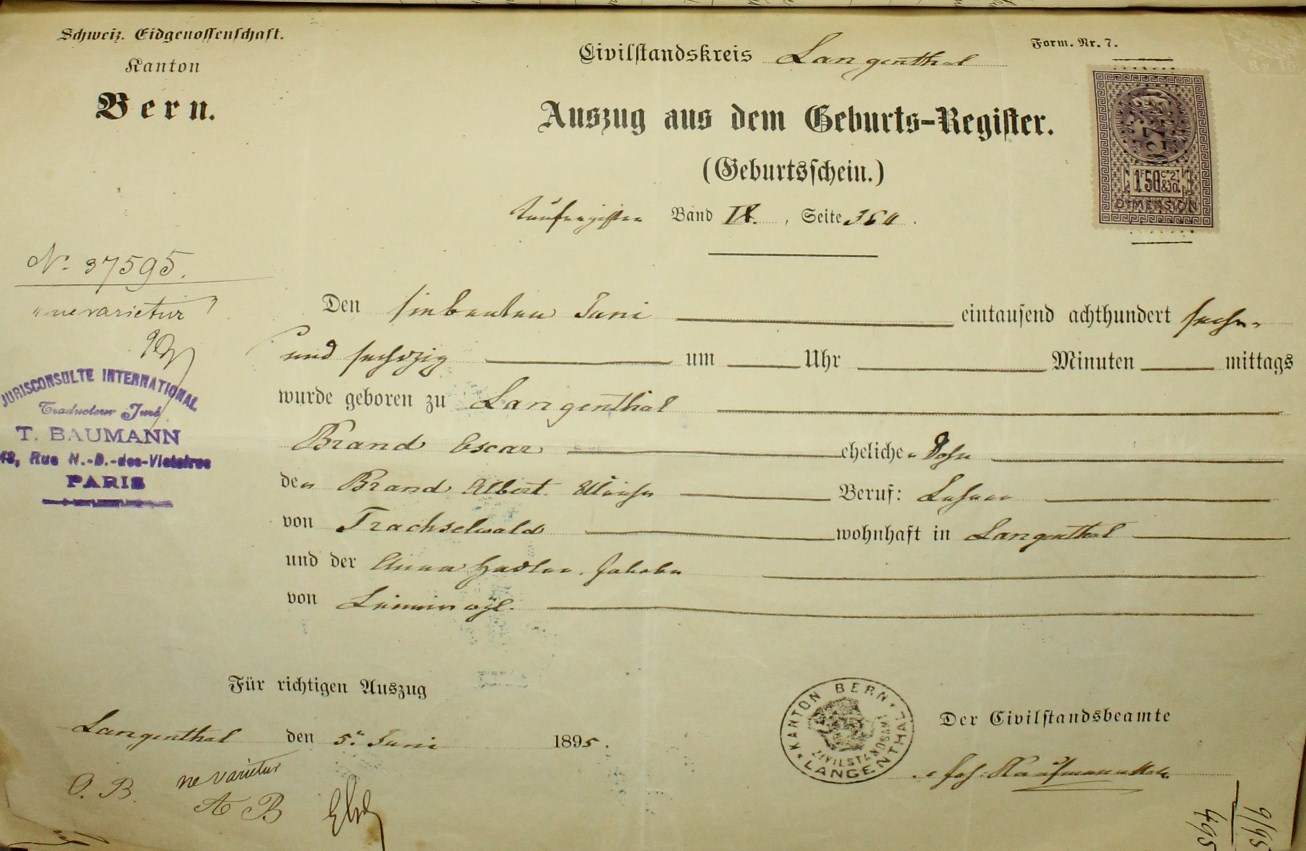 Schweiz. Eidgenossenschaft.
Kanton
Bern.
Form. Nr. 7.
Civilstandskreis Langenthal
Auszug aus dem Geburts-Register.
(Geburtsschein.)
Taufregister Band IX. , Seite 364.
1F50
DIMENSION
No. 37595.
"ne varietur"
JURISCONSULTE INTERNATIONAL
Traducteur Juré
T. BAUMANN
Rue N.-D.-des-Victoires
PARIS
Den siebenten Juni eintausend achthundert sechs-
und sechszig um Uhr Minuten mittags
wurde geboren zu Langenthal
Brand Oscar eheliche Sohn
des Brand Albert Ulrich Beruf: Lehrer
von Trachselwald wohnhaft in Langenthal
und der Anna Jakobs
von
Für richtigen Auszug
Langenthal den 5. Juni 1895.
KANTON BERN
CIVILSTANDSAMT
LANGENTHAL
Der Civilstandsbeamte
O. B. ne varietur
A B
9/95
495